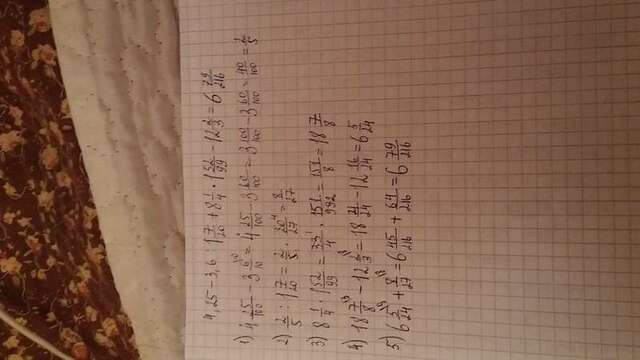 4,25 - 3,6 : 1 7/20 + 8 1/4 · 1 52/99 - 12 2/3 = 6 79/216
1) 4 25/100 - 3 6/10 = 4 25/100 - 3 60/100 = 3 100/100 - 3 60/100 = 40/100 = 2/5
2) 2/5 : 1 7/20 = 2/5 · 20/27 = 8/27
3) 8 1/4 : 1 52/99 = 33/4 · 151/992 = 151/8 = 18 7/8
4) 18 7/8 - 12 2/3 = 18 21/24 - 12 16/24 = 6 5/24
5) 6 5/24 + 8/27 = 6 45/216 + 64/216 = 6 79/216